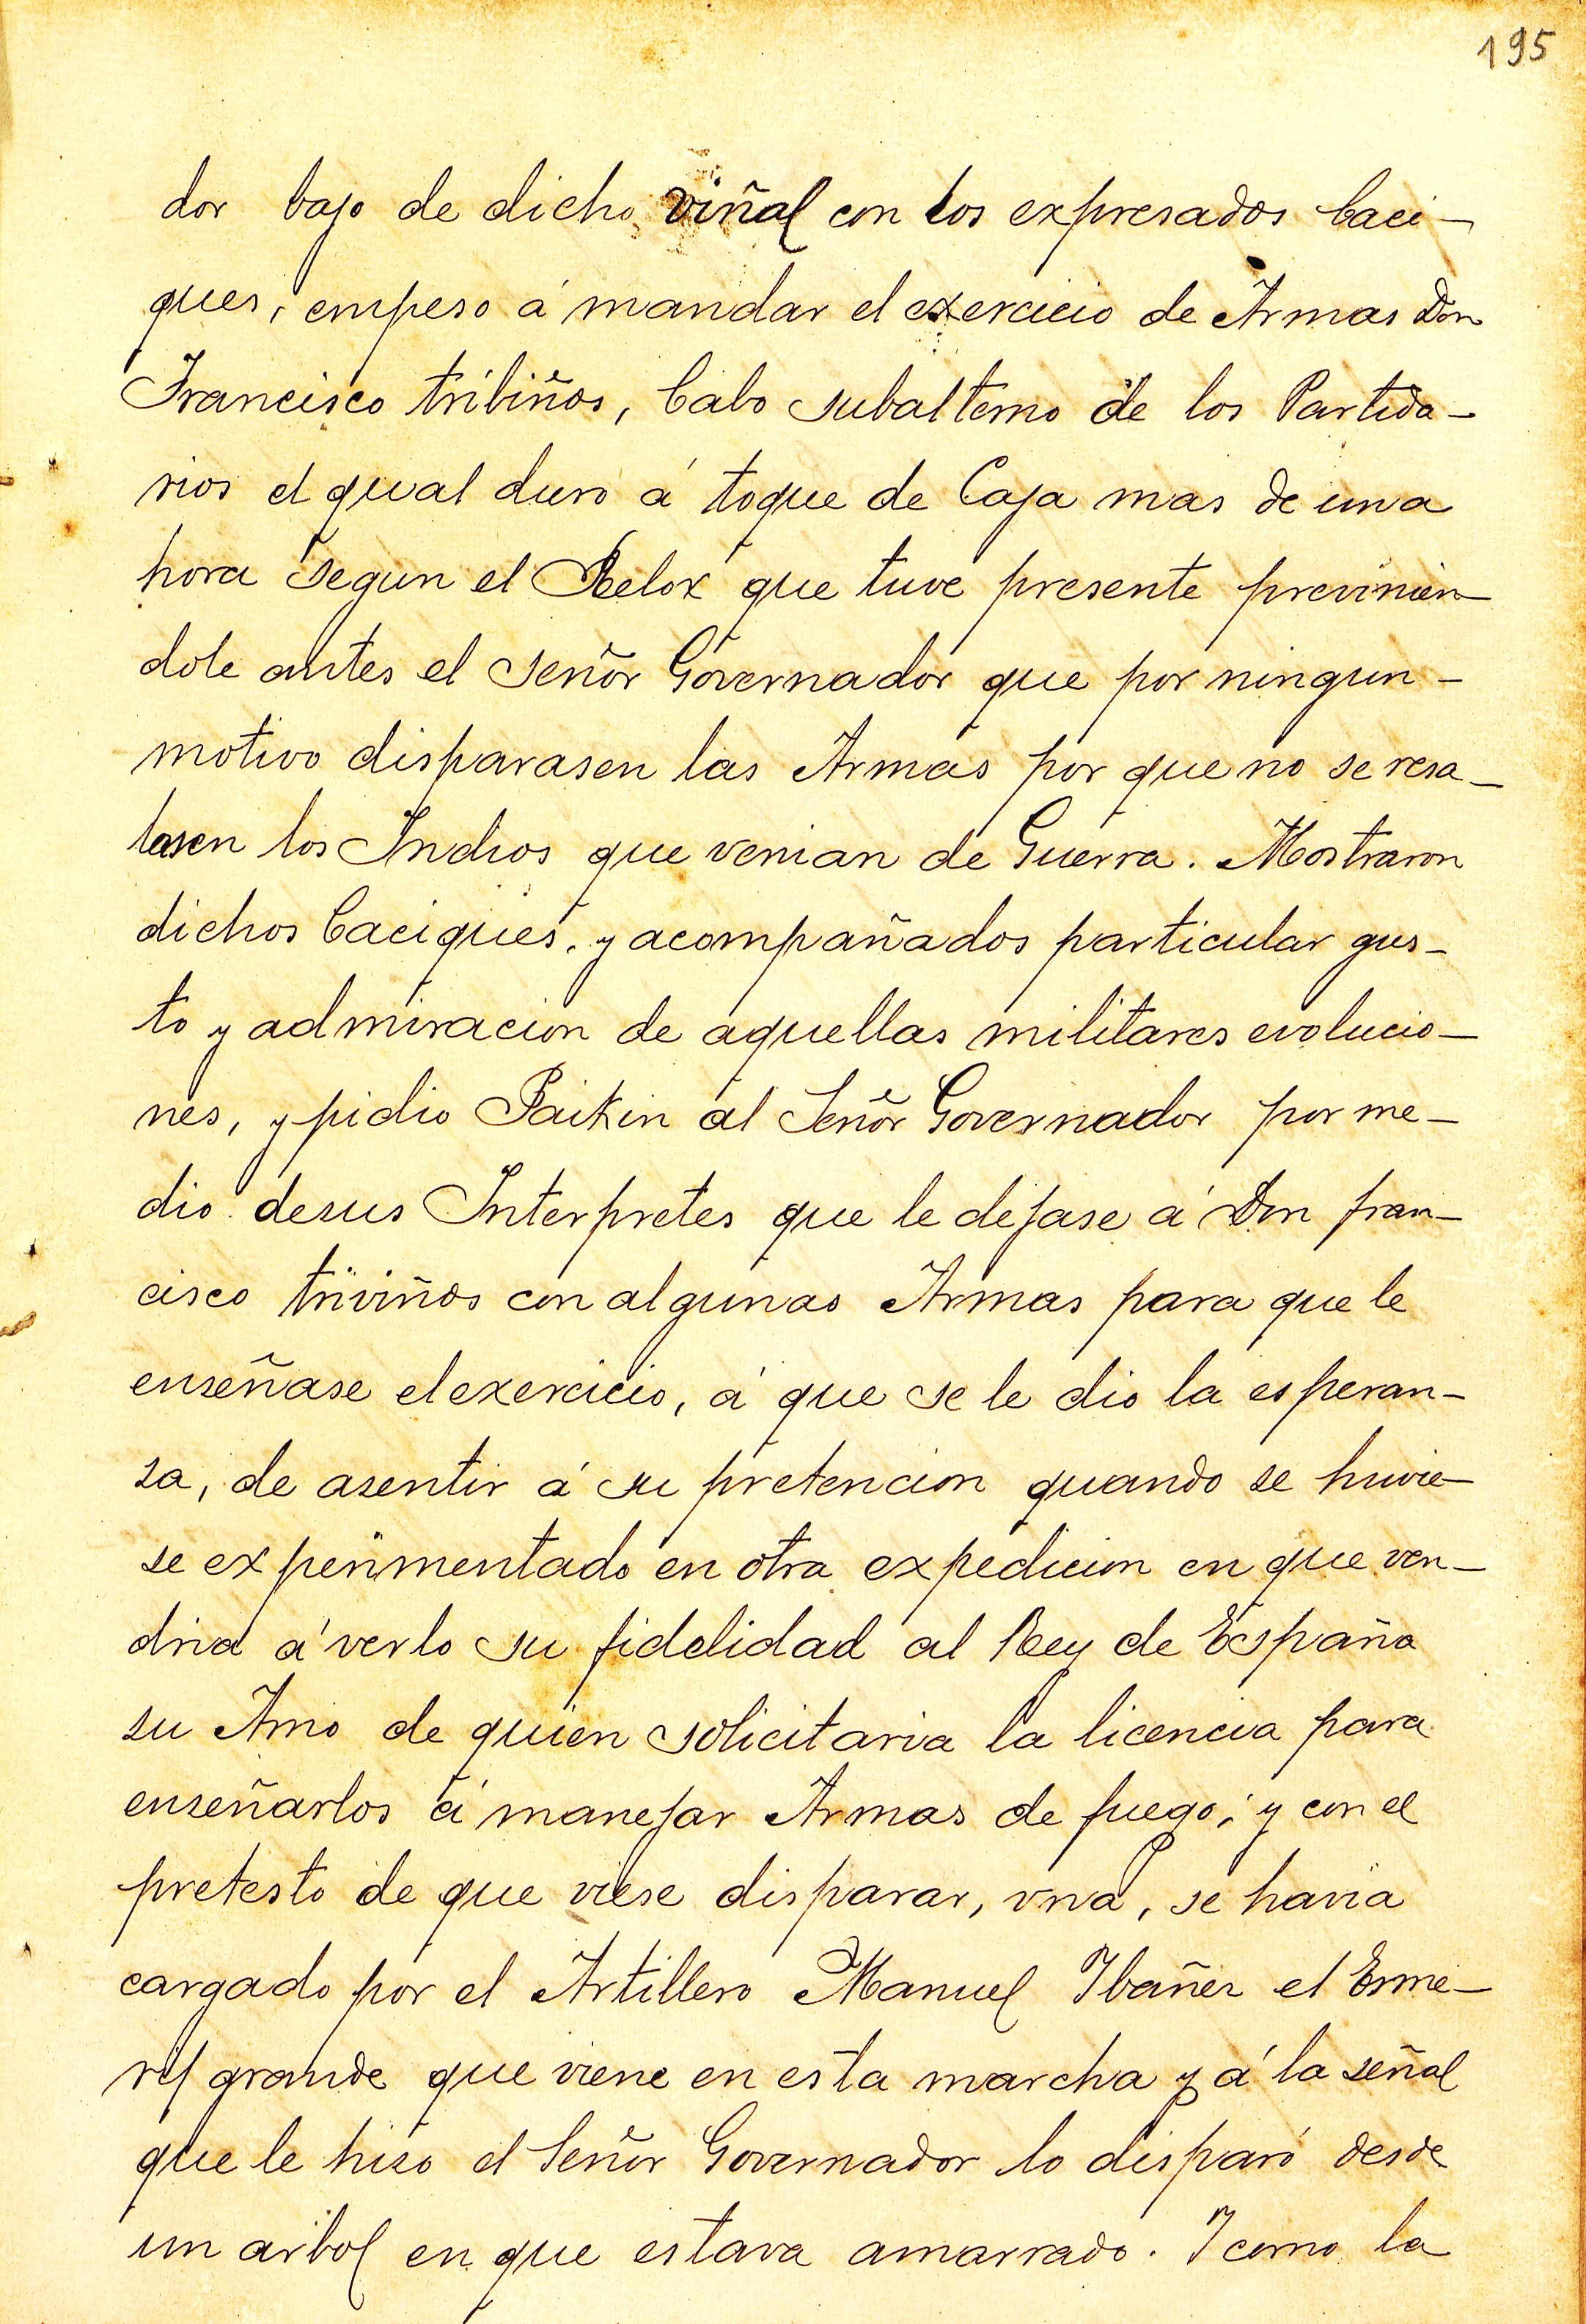 195
dor bajo de dicho viñal con los expresados Caci-
ques, empeso á mandar el exercicio de Armas Don
Francisco tribiños, Cabo subalterno de los Partida-
rios el qual duro á toque de Caja mas de una
hora segun el Relox que tuve presente previnien-
dole antes el señor Governador que por ningun-
motivo disparasen las Armas por que no se resa-
lasen los Indios que venian de Guerra. Mostraron
dichos Caciques, y acompañados particular gus-
to y admiracion de aquellas militares evolucio-
nes, y pidio Paikin al Señor Governador por me-
dio desus Interpretes que le dejase á Don fran-
cisco triviños con algunas Armas para que le
enseñase el exercicio, á que se le dio la esperan-
sa, de asentir á su pretencion quando se huvie-
se experimentado en otra expedicion en que ven-
dria á verlo su fidelidad al Rey de España
su Amo de quien solicitaria la licencia para
enseñarlos á manejar Armas de fuego; y con el
pretesto de que viese disparar, vna, se havia
cargado por el Artillero Manuel Ibañez el Esme-
ril grande que viene en esta marcha y á la señal
que le hizo el Señor Governador lo disparó desde
un arbol en que estava amarrado. I como la